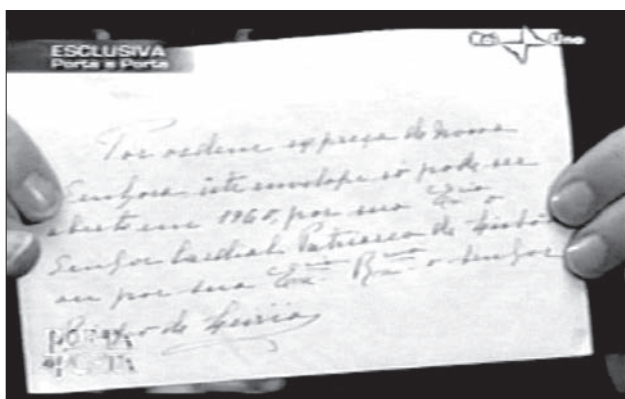 ESCLUSIVA
Porta a Porta
Rai Uno
Por ordem expreça de Nossa
Senhora, este envelope só pode ser
aberto em 1960, por sua Emcia o
Senhor Cardial Patriarca de Lisboa
ou por sua Excia. Rma. o Senhor
Bispo de Leiria
PORTA